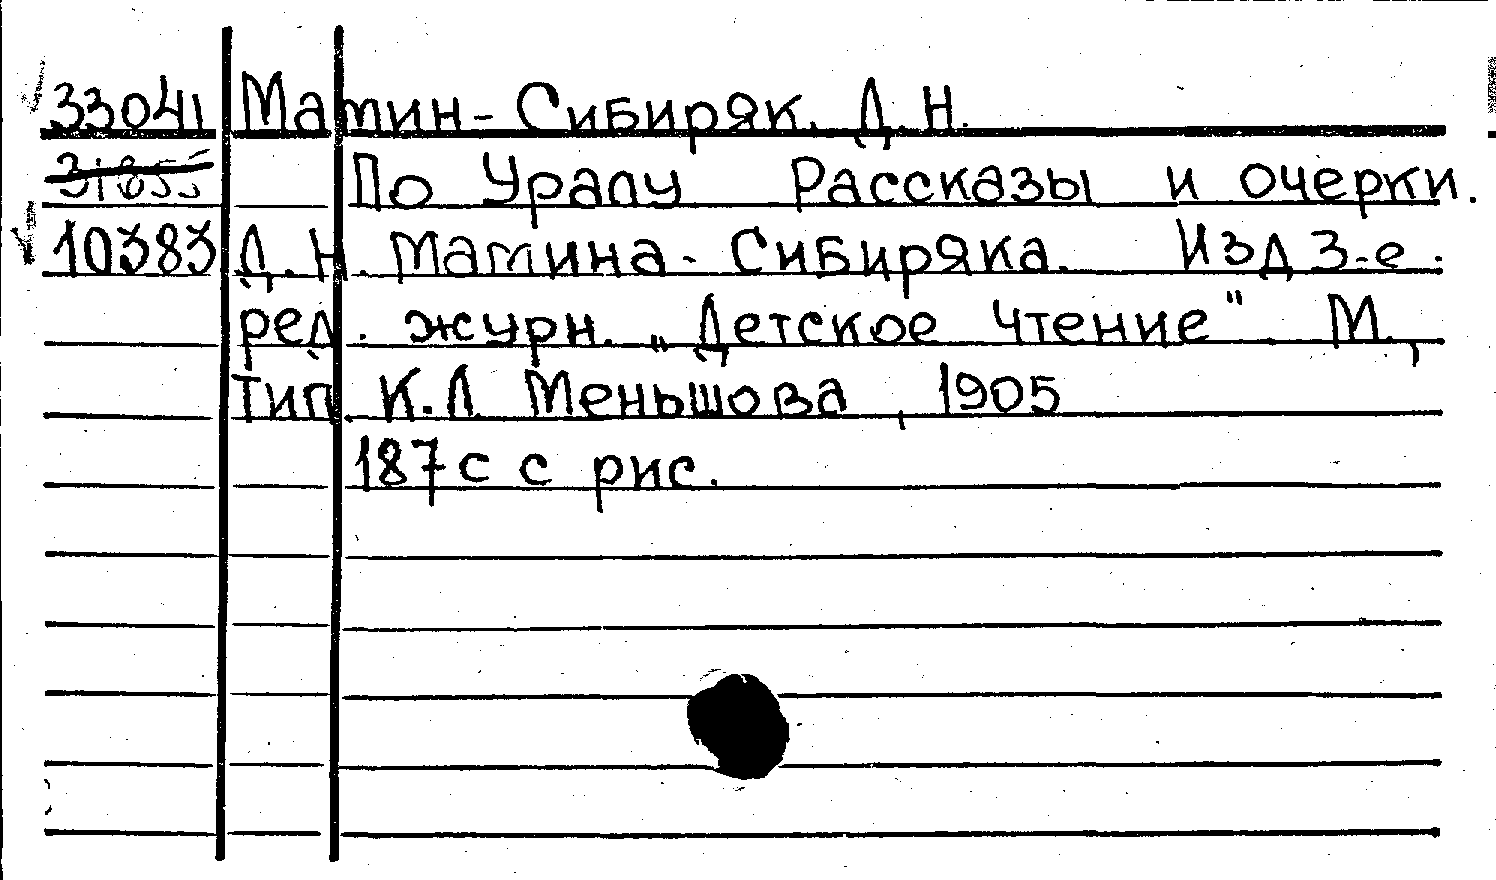 33041 Мамин-Сибиряк, Д. Н.
По Уралу Рассказы и очерки.
10383 Д. Н. Мамина-Сибиряка. Изд 3-е.
ред. журн. „Детское чтение" М.,
Тип К. Л. Меньшова, 1905
187с с рис.